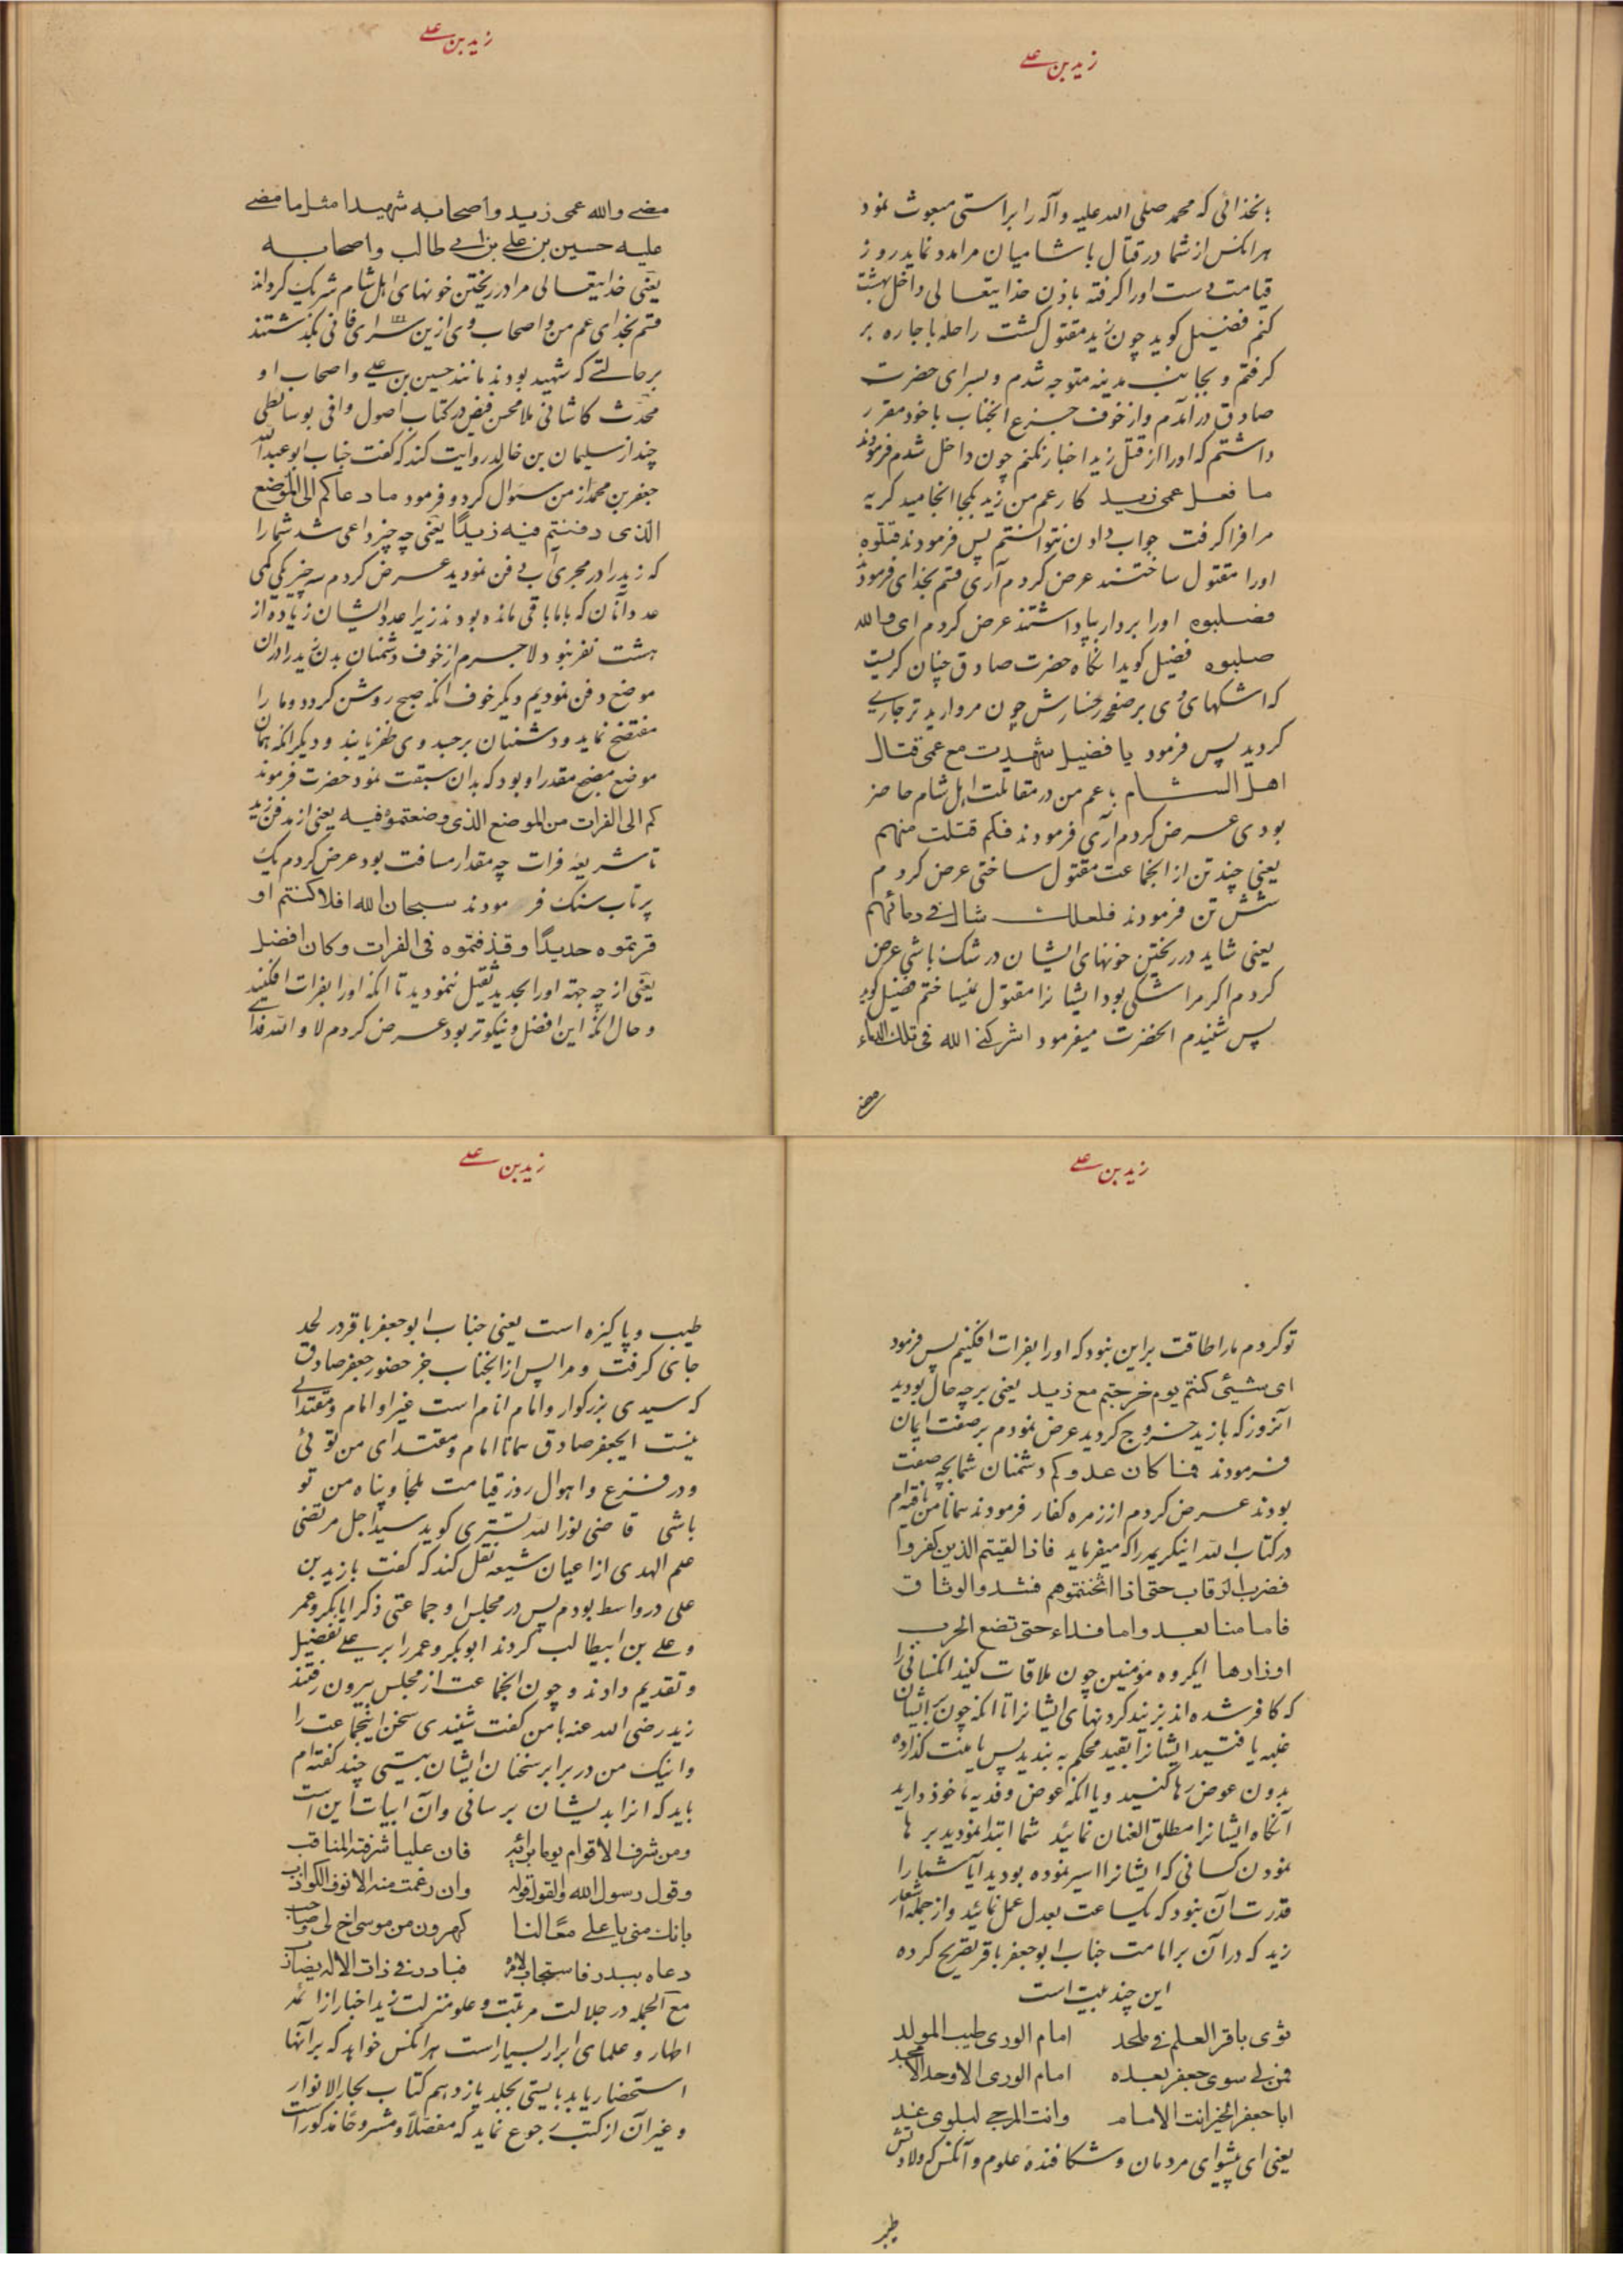 زید بن علی
بخدائی که محمد صلی الله علیه وآله را براستی مبعوث نمود
هرانکس از شما در قتال با شامیان مرا مدد نماید روز
قیامت دست اورا کرفته باذن خدایتعالی داخل بهشت
کنم فضیل کوید چون زید مقتول کشت راحله باجاره بر
کرفتم و بجانب مدینه متوجه شدم و بسرای حضرت
صادق در آمدم واز خوف جزع انجناب باخود مقرر
داشتم که اورا از قتل زید اخبار نکنم چون داخل شدم فرمودند
ما فعل عمی زید کار عم من زید بکجا انجامید کریه
مرا فرا کرفت جواب دادن نتوانستم پس فرمودند قتلوه
اورا مقتول ساختند عرض کردم آری قسم بخدای فرمود
فصلبوه اورا بر دار بپا داشتند عرض کردم ای والله
صلبوه فضیل کوید انکاه حضرت صادق چنان کریست
که اشکهای وی بر صفحه رخسارش چون مروارید تر جاری
کردید پس فرمود یا فضیل شهدت مع عمی قتال
اهل الشام با عم من در مقاتلت اهل شام حاضر
بودی عرض کردم آری فرمودند فکم قتلت منهم
یعنی چند تن از انجماعت مقتول ساختی عرض کردم
شش تن فرمودند فلعلک شاک فی دمائهم
یعنی شاید در ریختن خونهای ایشان در شک باشی عرض
کردم اکر مرا شکی بود ایشانرا مقتول نمیساختم فضیل کوید
پس شنیدم انحضرت میفرمود اشرکنی الله فی تلک الدماء
مضی
زید بن علی
مضی والله عمی زید واصحابه شهیدا مثل ما مضی
علیه حسین بن علی بن ابی طالب واصحابه
یعنی خدایتعالی مرا در ریختن خونهای اهل شام شریک کرداند
قسم بخدای عم من و اصحاب وی ازین سرای فانی بکذشتند
بر حالتی که شهید بودند مانند حسین بن علی واصحاب او
محدث کاشانی ملا محسن فیض در کتاب اصول وافی بوسائطی
چند از سلیمان بن خالد روایت کند که کفت جناب ابوعبدالله
جعفر بن محمد از من سئوال کرد و فرمود ما دعاکم الی الموضع
الذی دفنتم فیه زیدًا یعنی چه چیز داعی شد شما را
که زید را در مجرای آب دفن نمودید عرض کردم سه چیز یکی کمی
عدد آنان که باما باقی مانده بودند زیرا عدد ایشان زیاده از
هشت نفر نبود لاجرم از خوف دشمنان بدن زید را در ان
موضع دفن نمودیم دیکر خوف انکه صبح روشن کردد وما را
مفتضح نماید ودشمنان بر جسد وی ظفر یابند و دیکر انکه همان
موضع مضجع مقدر او بود که بدان سبقت نمود حضرت فرموند
کم الی الفرات من الموضع الذی وضعتموه فیه یعنی از مدفن زید
تا شریعه فرات چه مقدار مسافت بود عرض کردم یک
پرتاب سنک فرمودند سبحان الله افلا کنتم او
قرتموه حدیدًا وقذفتموه فی الفرات وکان افضل
یعنی از چه جهته اورا بحدید ثقیل ننمودید تا انکه اورا بفرات افکنید
وحال انکه این افضل و نیکوتر بود عرض کردم لا والله فدای
زید بن علی
تو کردم ما را طاقت بر این نبود که اورا بفرات افکنیم پس فرمود
ای شیئی کنتم یوم خرجتم مع زید یعنی بر چه حال بودید
آنروز که با زید خروج کردید عرض نمودم بر صفت ایمان
فرمودند فما کان عدوکم دشمنان شما بچه صفت
بودند عرض کردم از زمره کفار فرمودند همانا من یافته ام
در کتاب الله اینکریمه را که میفرماید فاذا لقیتم الذین کفروا
فضرب الرقاب حتی اذا اثخنتموهم فشدوا الوثاق
فاما منا بعد واما فداء حتی تضع الحرب
اوزارها ایکروه مؤمنین چون ملاقات کنید انکسانی را
که کافر شده اند بزنید کردنهای ایشانرا تا انکه چون بر ایشان
غلبه یافتید ایشانرا بقید محکم به بندید پس یا منت کذارده
بدون عوض رها کنید ویا انکه عوض وفدیه ماخوذ دارید
آنکاه ایشانرا مطلق العنان نمائید شما ابتدا نمودید برها
نمودن کسانی که ایشانرا اسیر نموده بودید ایا شما را
قدرت آن نبود که یکساعت بعدل عمل نمائید واز جمله اشعار
زید که در آن بر امامت جناب ابوجعفر باقر تصریح کرده
این چند بیت است
ثوی باقر العلم فی ملحد امام الوری طیب المولد
فمن لی سوی جعفر بعده امام الوری الاوحد الامجد
ابا جعفر الخیر انت الامام وانت المرجی لبلوی غد
یعنی ای پیشوای مردمان وشکافنده علوم وآنکس که ولادتش
طیب
زید بن علی
طیب وپاکیزه است یعنی جناب ابوجعفر باقر در لحد
جای کرفت ومرا پس از انجناب جز حضور جعفر صادق
که سیدی بزرکوار وامام انام است غیر او امام ومقتدائی
نیست ایجعفر صادق همانا امام ومقتدای من توئی
ودر فزع واهوال روز قیامت ملجأ وپناه من تو
باشی قاضی نورالله تستری کوید سید اجل مرتضی
علم الهدی از اعیان شیعه نقل کند که کفت با زید بن
علی در واسط بودم پس در مجلس او جماعتی ذکر ابابکر وعمر
وعلی بن ابیطالب کردند ابوبکر وعمر را بر علی تفضیل
وتقدیم دادند وچون انجماعت از مجلس بیرون رفتند
زید رضی الله عنه با من کفت شنیدی سخن اینجماعت را
واینک من در برابر سخنان ایشان بیتی چند کفته ام
باید که انرا بدیشان برسانی وآن ابیات این است
ومن شرف الاقوام یوما برائه فان علیا شرفته المناقب
وقول رسول الله والقول قوله وان رغمت منه الانوف الکواذب
بانک منی یا علی معالنا کهرون من موسی اخ لی وصاحب
دعاه ببدر فاستجاب لامره فبادر فی ذات الاله یضارب
مع الجمله در جلالت مرتبت وعلو منزلت زید اخبار از ائمه
اطهار وعلمای ابرار بسیار است هرانکس خواهد که بر آنها
استحضار یابد بایستی بجلد یازدهم کتاب بحار الانوار
وغیر آن از کتب رجوع نماید که مفصلاً ومشروحًا مذکور است